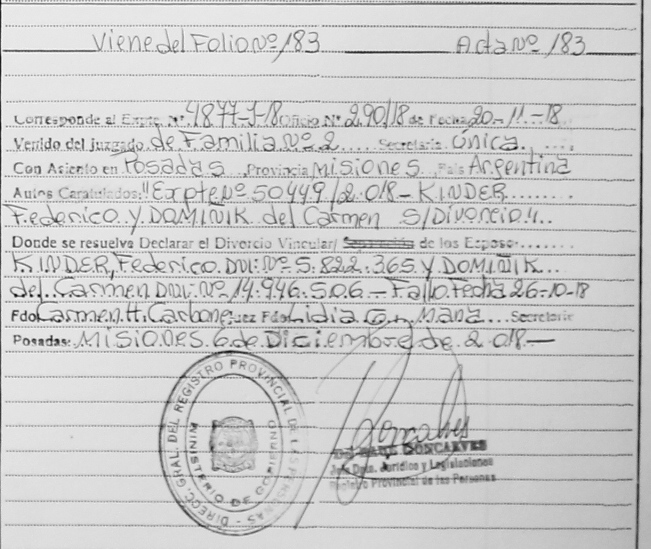 Viene del Folio Nº 183 Acta Nº 183
Corresponde al Expte. Nº 4877-J-18 Oficio Nº 290/18 de Fecha 20-11-18
Venido del juzgado de Familia Nº 2 Secretaría Única
Con Asiento en Posadas Provincia Misiones País Argentina
Autos Caratulados: "Expte Nº 50449/2.018 - KINDER
Federico y DOMINIK del Carmen S/Divorcio".
Donde se resuelve Declarar el Divorcio Vincular/ de los Esposos
KINDER, Federico. DNI: Nº 5.822.365 y DOMINIK
del Carmen DNI: Nº 14.946.506 - Fallo Fecha 26-10-18
Fdo Carmen H. Carbone Juez Fdo Lidia Secretaria
Posadas: Misiones. 6 de Diciembre de 2.018 -
DIRECC. GRAL. DEL REGISTRO PROVINCIAL DE LAS PERSONAS
MINISTERIO DE GOBIERNO
Goncalves
GONCALVES
Jefe Dpto. Jurídico y Legislaciones
Registro Provincial de las Personas